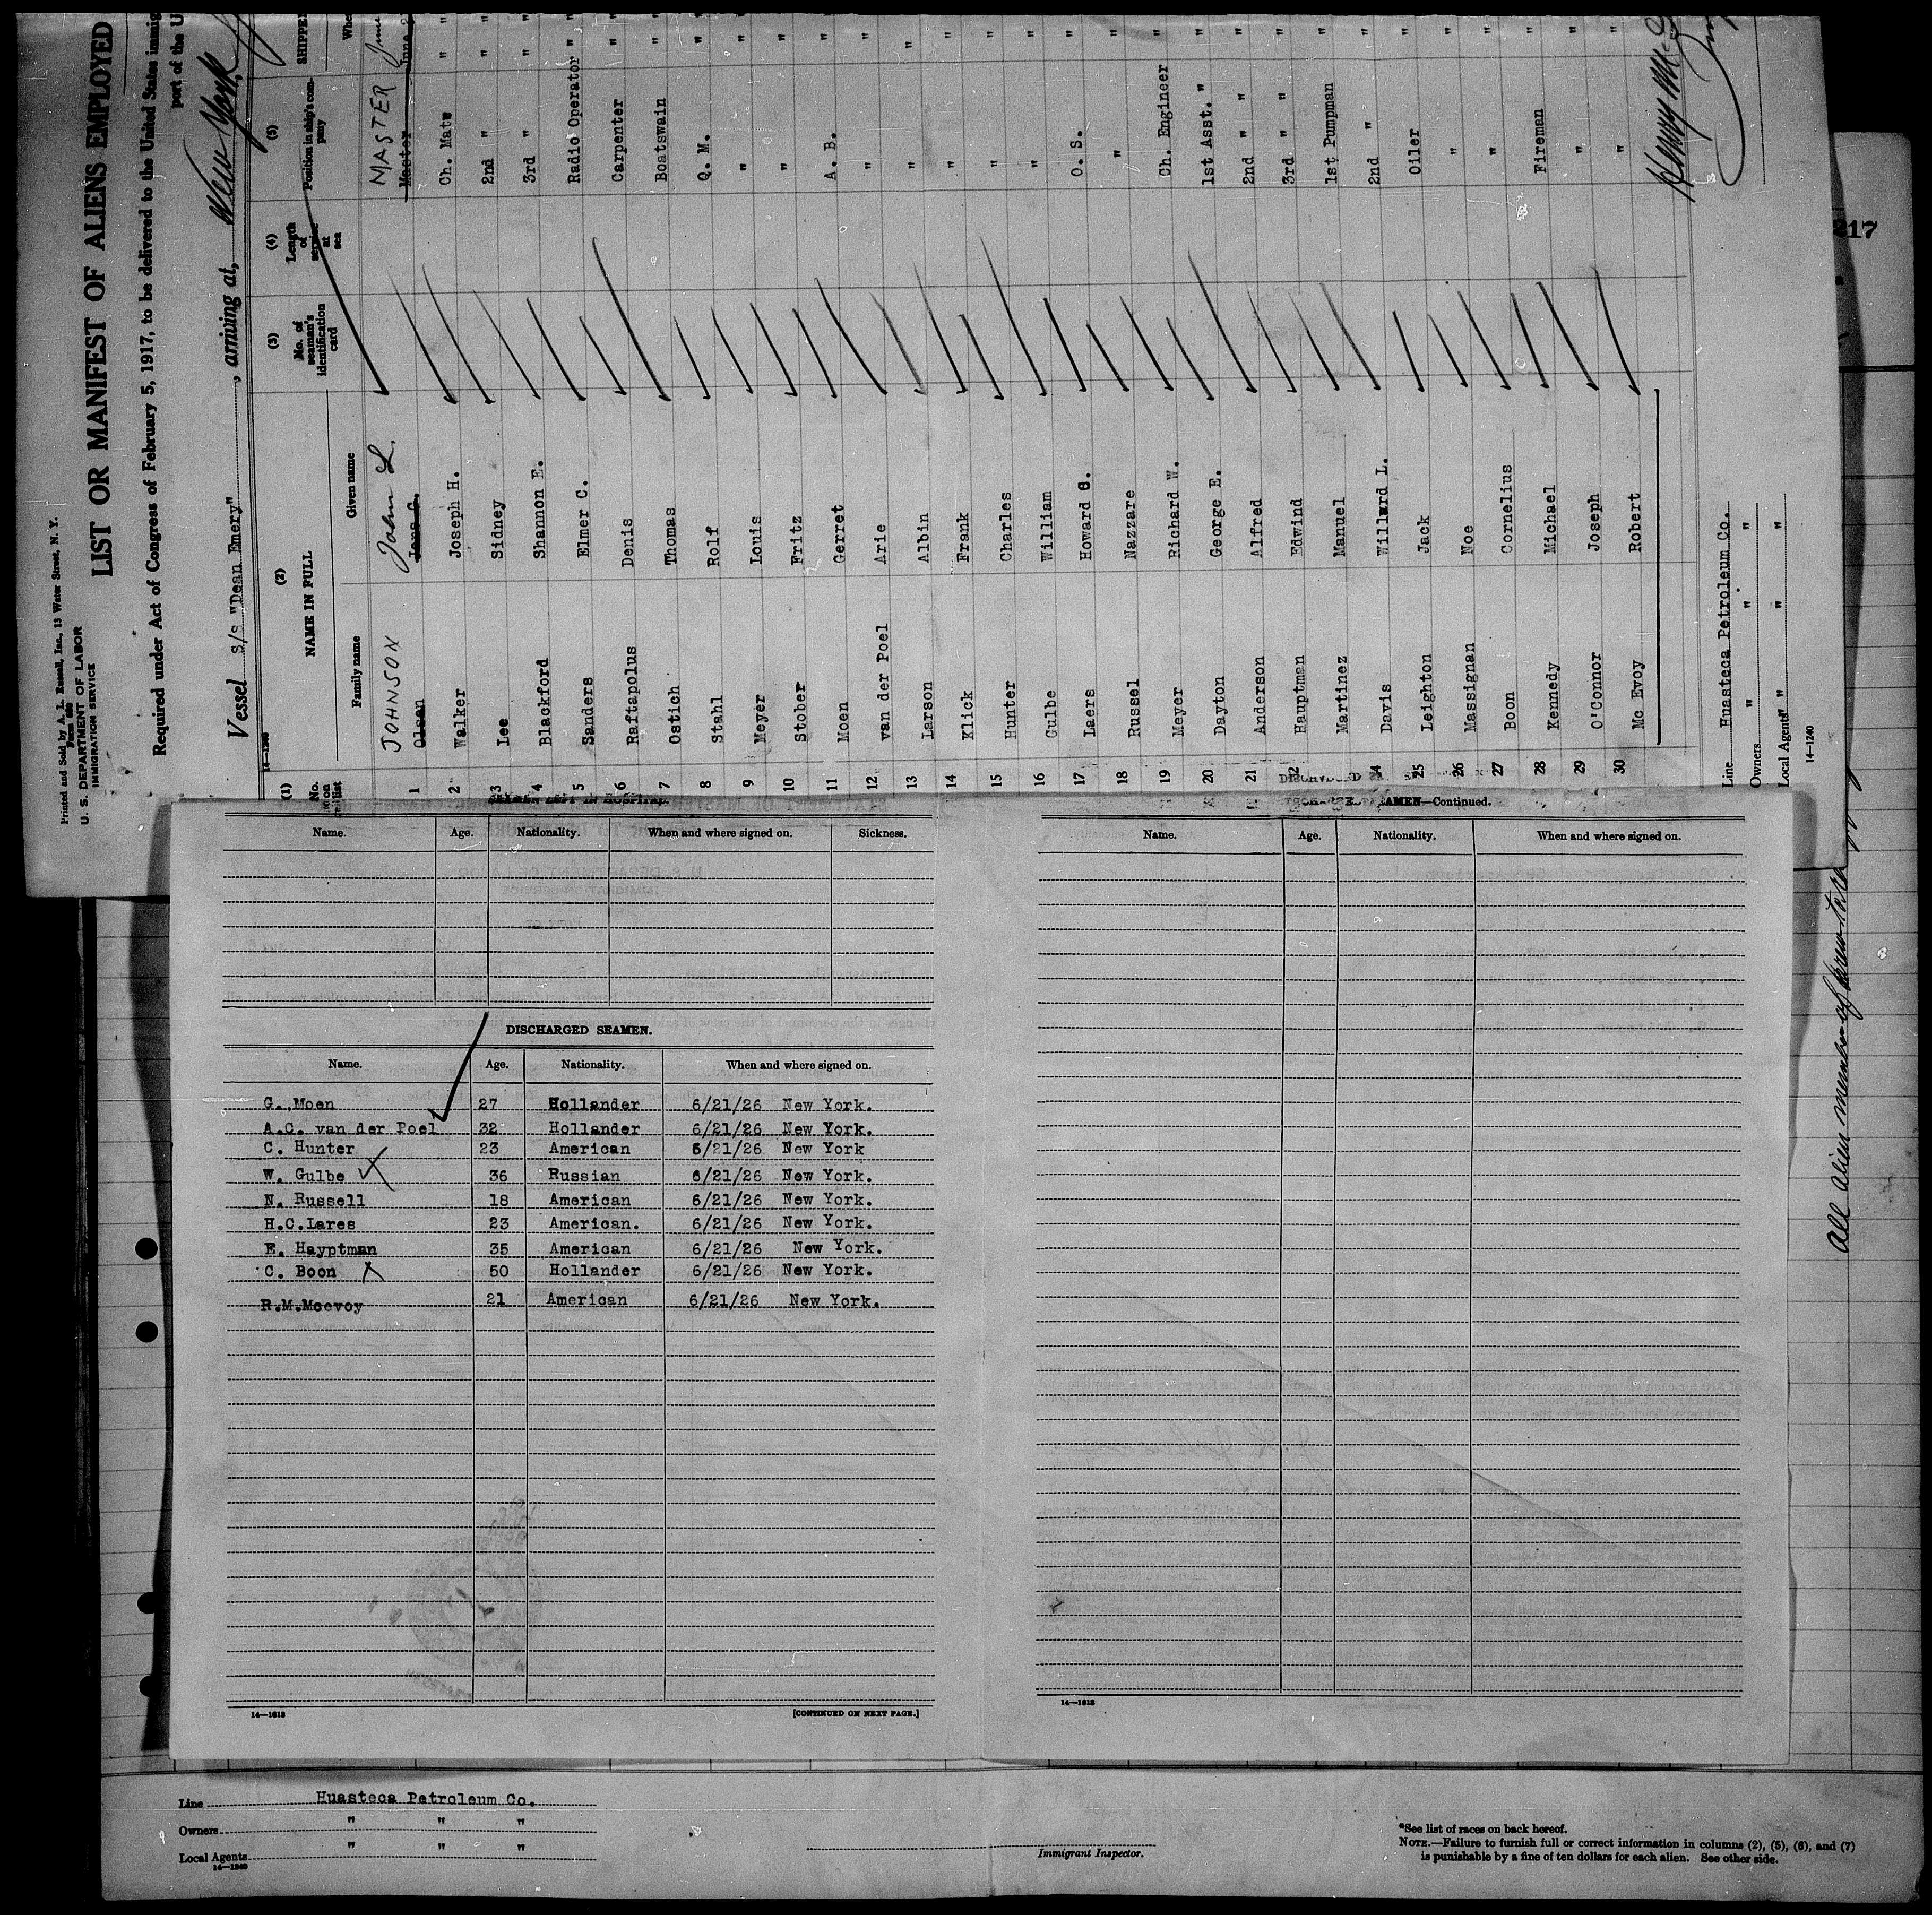 Printed and Sold by A. L. Russell, Inc., 13 Water Street, N. Y.
Form 680
U. S. DEPARTMENT OF LABOR
IMMIGRATION SERVICE
LIST OR MANIFEST OF ALIENS EMPLOYED
Required under Act of Congress of February 5, 1917, to be delivered to the United States immig
port of the U
Vessel S/S "Dean Emery", arriving at, New York,
14—1240
(1) (2) (3) (4) (5)
No. on list NAME IN FULL No. of seaman's identification card Length of service at sea Position in ship's company SHIPPE
Family name Given name Whe
1 JOHNSON John L. MASTER June
Olsen Jens C. Master June 2
2 Walker Joseph H. Ch. Mate "
3 Lee Sidney 2nd " "
4 Blackford Shannon E. 3rd " "
5 Sanders Elmer C. Radio Operator "
6 Raftapolus Denis Carpenter "
7 Ostich Thomas Boatswain "
8 Stahl Rolf Q. M. "
9 Meyer Louis " "
10 Stober Fritz " "
11 Moen Gerret A. B. "
12 van der Poel Arie " "
13 Larson Albin " "
14 Klick Frank " "
15 Hunter Charles " "
16 Gulbe William " "
17 Laers Howard C. O. S. "
18 Russel Nazzare " "
19 Meyer Richard W. Ch. Engineer "
20 Dayton George E. 1st Asst. " "
21 Anderson Alfred 2nd " " "
22 Hauptman Edwind 3rd " " "
Martinez Manuel 1st Pumpman "
24 Davis Willard L. 2nd " "
25 Leighton Jack Oiler "
26 Massignan Noe " "
27 Boon Cornelius " "
28 Kennedy Michael Fireman "
29 O'Connor Joseph " "
30 Mc Evoy Robert " "
Line Huasteca Petroleum Co.
Owners " " "
Local Agents " " "
14—1240
217
All alien members of crew
SEAMEN LEFT IN HOSPITAL.
Name. Age. Nationality. When and where signed on. Sickness.
DISCHARGED SEAMEN.
Name. Age. Nationality. When and where signed on.
G. Moen 27 Hollander 6/21/26 New York.
A.C. van der Poel 32 Hollander 6/21/26 New York.
C. Hunter 23 American 6/21/26 New York
W. Gulbe 36 Russian 6/21/26 New York.
N. Russell 18 American 6/21/26 New York.
H.C.Lares 23 American. 6/21/26 New York.
E. Hayptman 35 American 6/21/26 New York.
C. Boon 50 Hollander 6/21/26 New York.
R.M.Mcevoy 21 American 6/21/26 New York.
14—1613
[CONTINUED ON NEXT PAGE.]
DISCHARGED SEAMEN—Continued.
Name. Age. Nationality. When and where signed on.
14—1613
Line Huasteca Petroleum Co.
Owners " " "
Local Agents " " "
14—1240
Immigrant Inspector.
*See list of races on back hereof.
NOTE.—Failure to furnish full or correct information in columns (2), (5), (6), and (7)
is punishable by a fine of ten dollars for each alien. See other side.